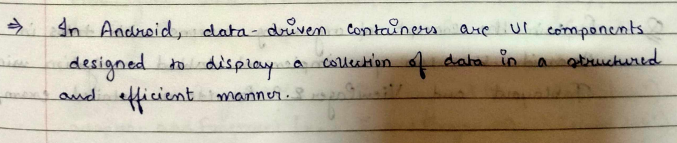 ⇒ In Android, data-driven containers are UI components
designed to display a collection of data in a structured
and efficient manner.